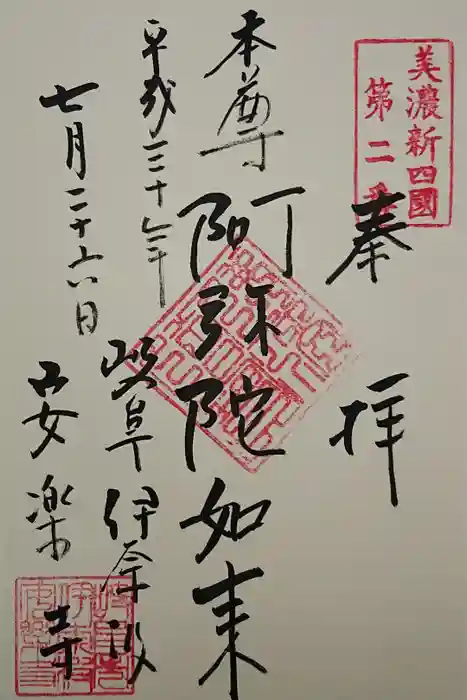 美濃新四國
第二番
奉拝
本尊
阿弥陀如来
平成三十年
七月二十六日
岐阜伊奈波
安楽寺